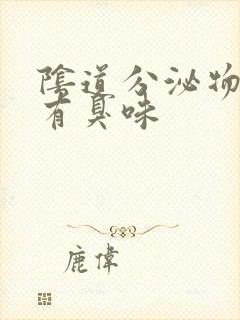 陰道分泌物
有臭味
鹿偉